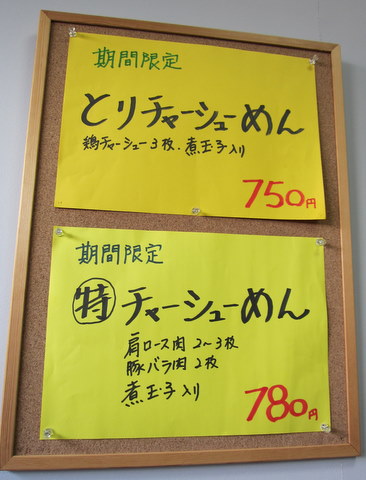 期間限定
とりチャーシューめん
鶏チャーシュー3枚.煮玉子入り
750円
期間限定
特チャーシューめん
肩ロース肉 2〜3枚
豚バラ肉 2枚
煮玉子入り
780円